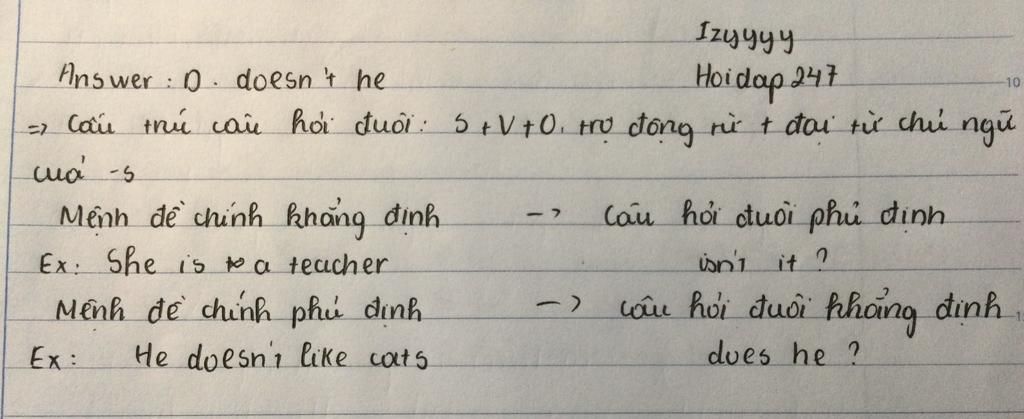 Izyyyy
Answer : D. doesn't he Hoidap 247
=> Cấu trúc câu hỏi đuôi: S + V + O, trợ động từ + đại từ chủ ngữ
của -s
Mệnh đề chính khẳng định -> câu hỏi đuôi phủ định
Ex: She is a teacher isn't it ?
Mệnh đề chính phủ định -> câu hỏi đuôi khẳng định
Ex: He doesn't like cats does he ?